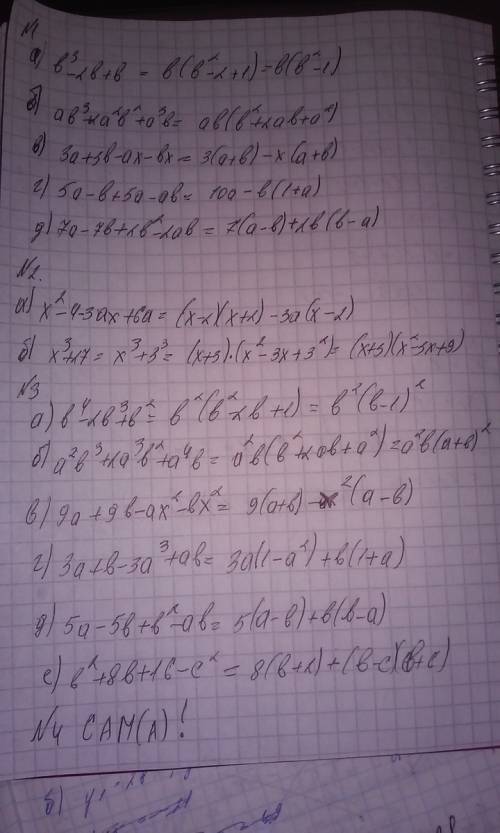 N1
а) b³-2b+b = b(b²-2+1)=b(b²-1)
б) ab³+2a²b²+a³b= ab(b²+2ab+a²)
в) 3a+3b-ax-bx=3(a+b)-x(a+b)
г) 5a-b+5a-ab= 10a-b(1+a)
д) 7a-7b+2b²-2ab = 7(a-b)+2b(b-a)
N2.
а) x²-4-3ax+6a= (x-2)(x+2)-3a(x-2)
б) x³+27= x³+3³= (x+3)·(x²-3x+3²)= (x+3)(x²-3x+9)
N3
а) b⁴-2b³+b²= b²(b²-2b+1) = b²(b-1)²
б) a²b³+2a³b²+a⁴b= a²b(b²+2ab+a²)=a²b(a+b)²
в) 9a+9b-ax²-bx²= 9(a+b)-x²(a-b)
г) 3a+b-3a³+ab= 3a(1-a²)+b(1+a)
д) 5a-5b+b²-ab= 5(a-b)+b(b-a)
е) b²+8b+16-c²= 8(b+2)+(b-c)(b+c)
N4 САМ(А)!
б) y